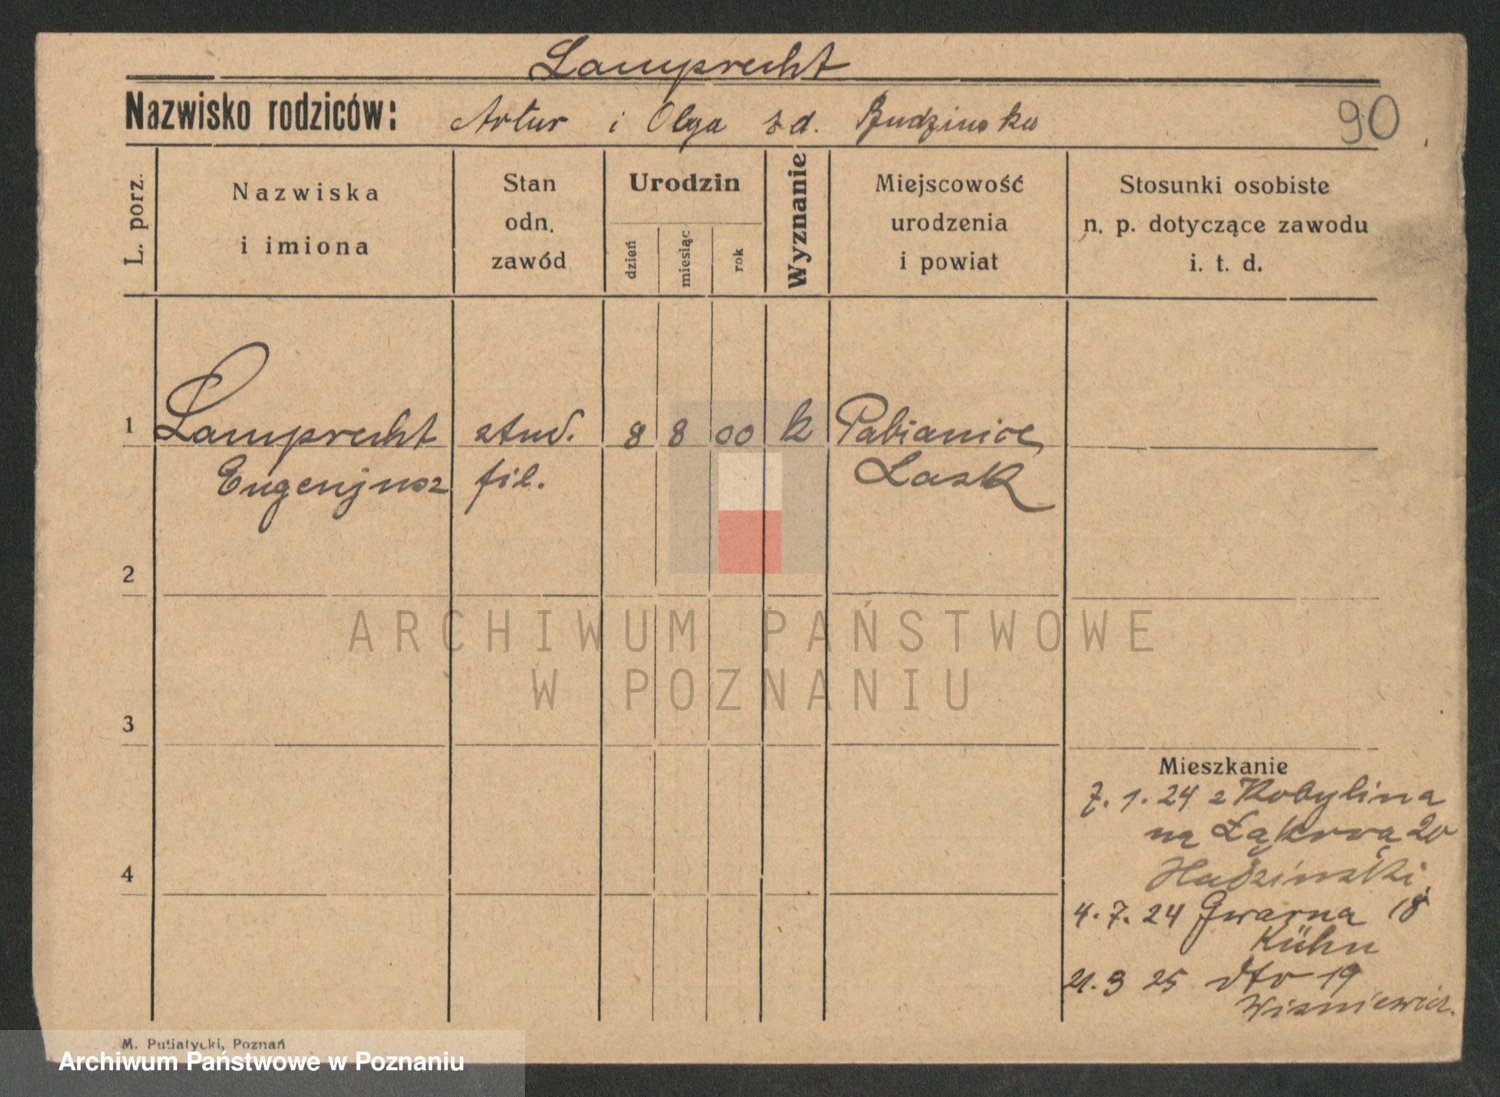 Lamprecht
Nazwisko rodziców: Artur i Olga z d. Budzinska
90
L. porz.
Nazwiska
i imiona
Stan
odn.
zawód
Urodzin
dzień
miesiąc
rok
Wyznanie
Miejscowość
urodzenia
i powiat
Stosunki osobiste
n. p. dotyczące zawodu
i. t. d.
1 Lamprecht stud. 8 8 00 k Pabianice
Eugenjusz fil. Lask
2
3
4
Mieszkanie
7. 1. 24 z Kobylina
na Łąkową 20
4. 7. 24 Gwarna 18
Kühn
21. 3 25 dto 19
Wisniewicz.
M. Putiatycki, Poznań
ARCHIWUM PAŃSTWOWE
W POZNANIU
Archiwum Państwowe w Poznaniu